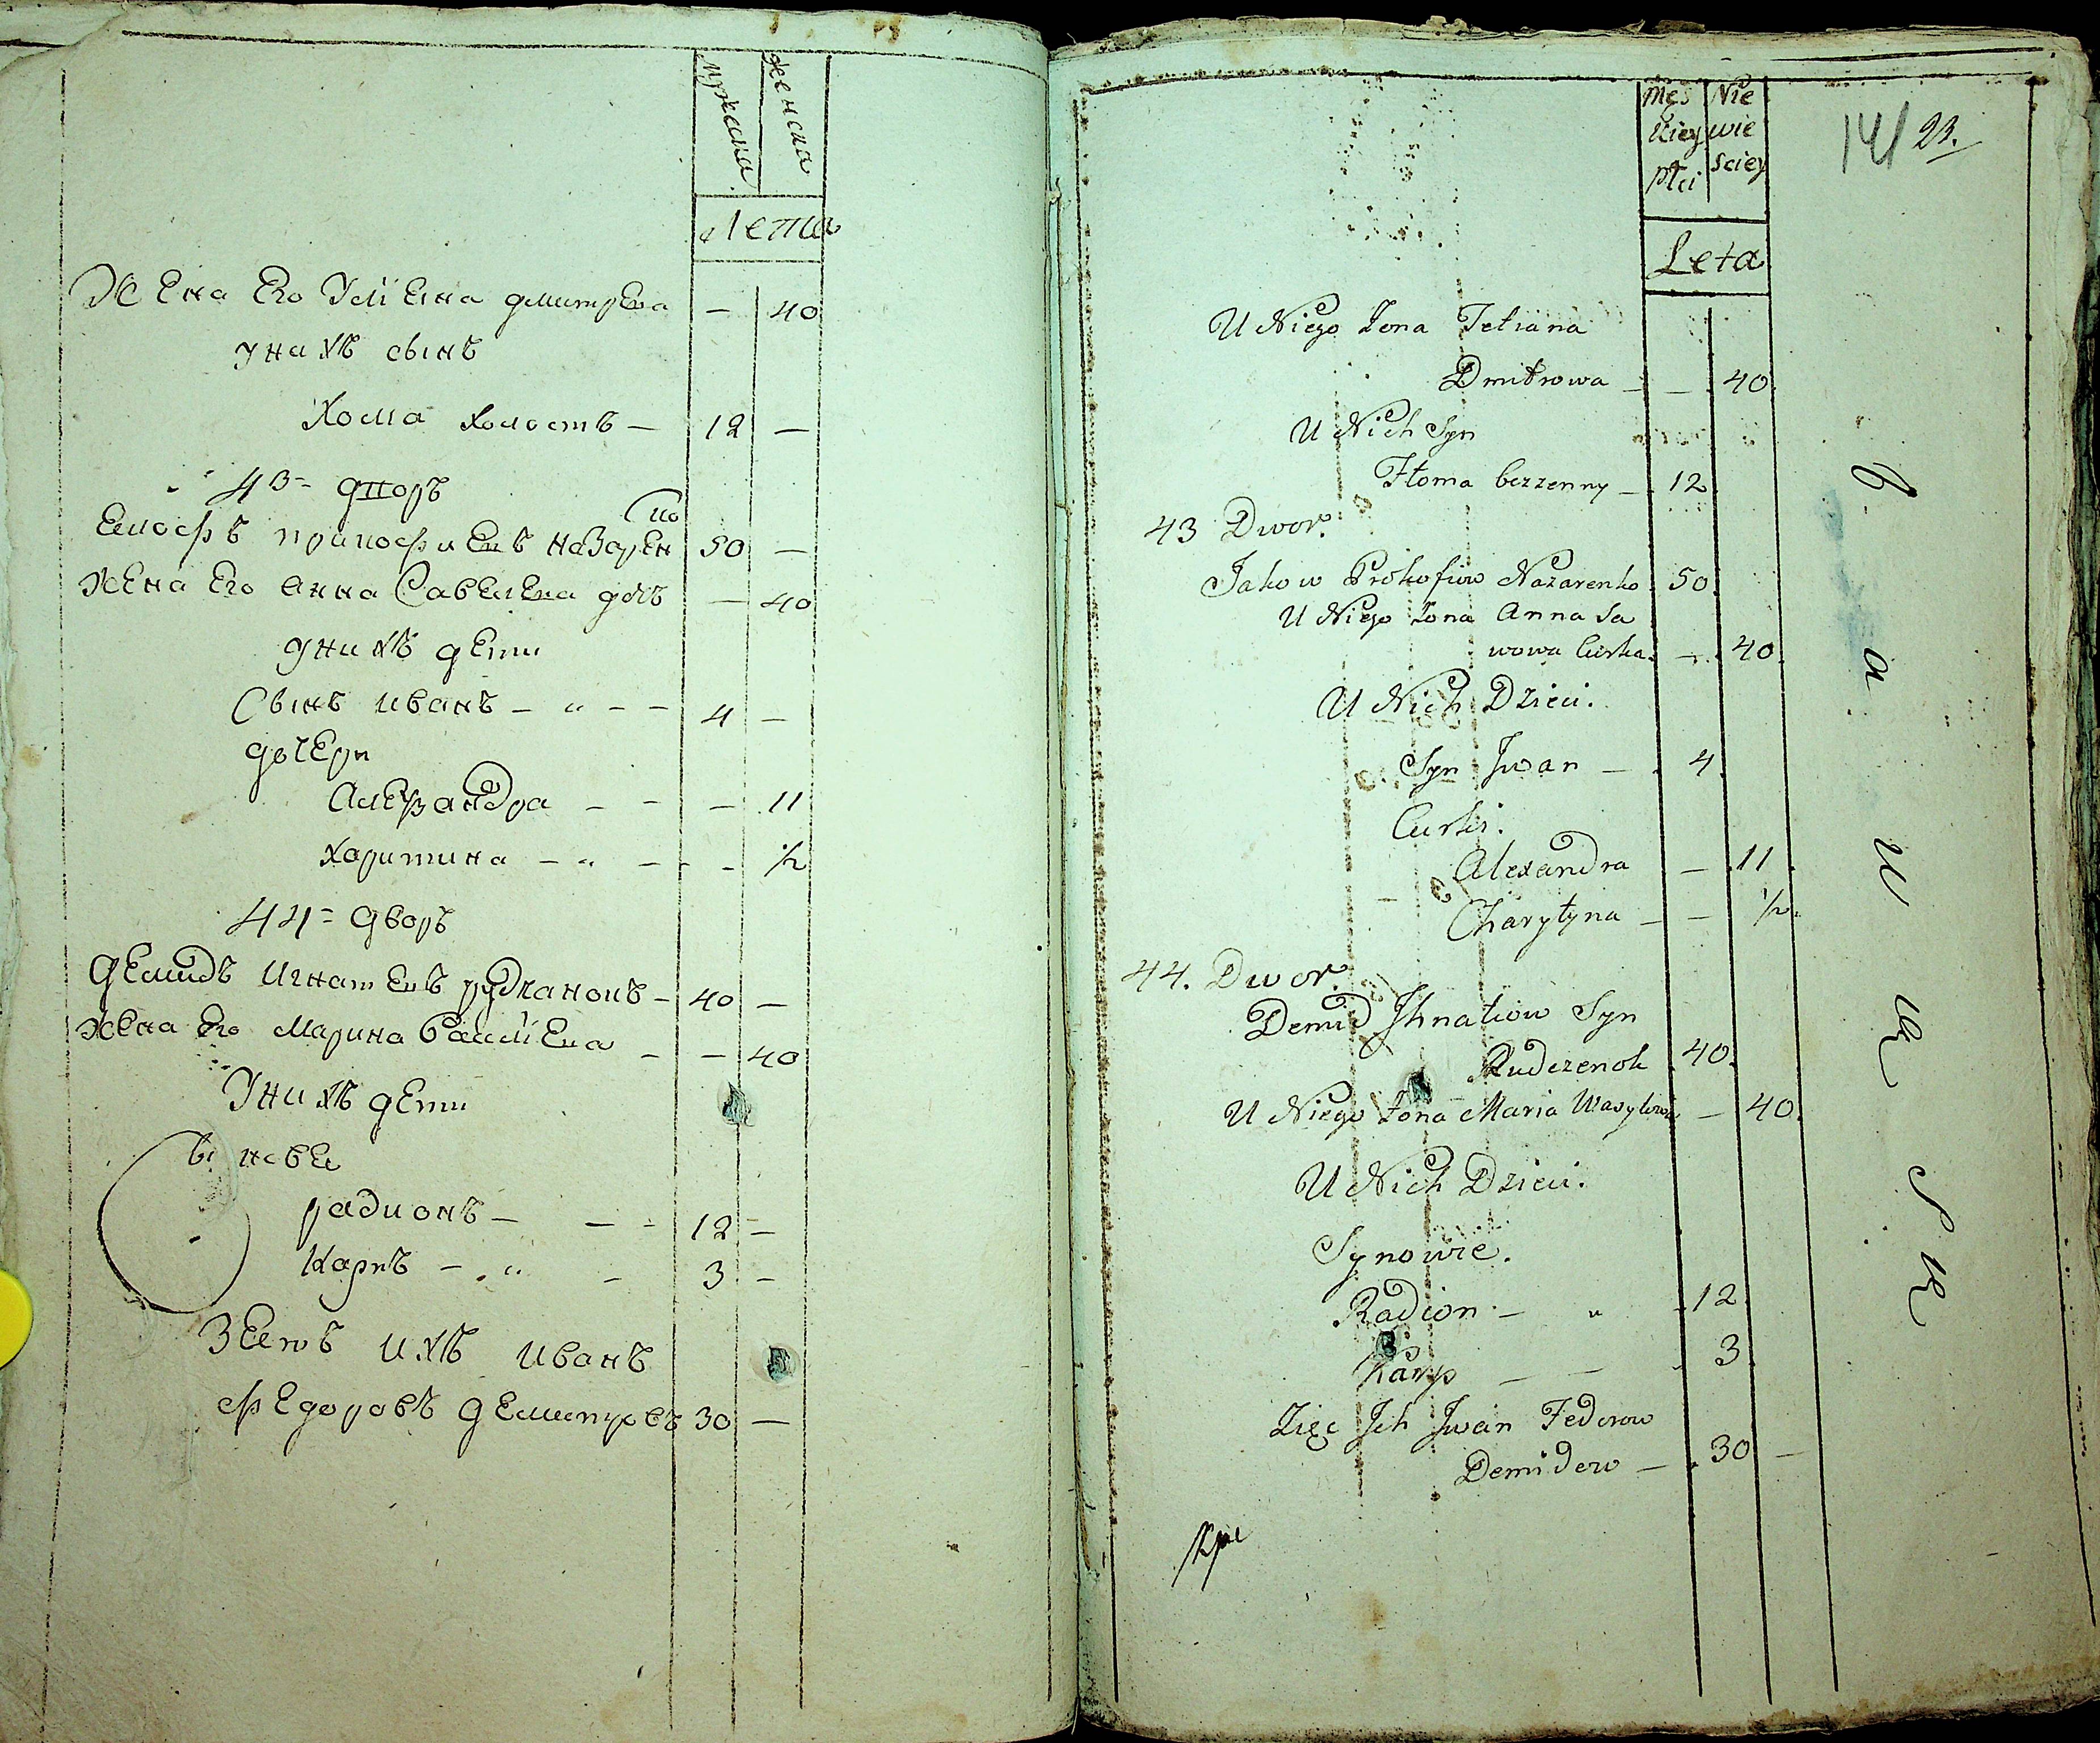 мужеска
женска
Лета
Жена Его Улiяна дмитрЕва — 40
у нихъ сынъ
Хома холостъ — 12 —
43 = дворъ
прикофиЕвъ НазарЕнко 50 —
Жена Его Анна СавЕлЕва дочъ — 40
у нихъ дЕти
Сынъ иванъ — " — — 4 —
дочЕри
АлЕксандра — — — 11
харитина — " — — — 1/2
44 = дворъ
ДЕмидъ ИгнатЕвъ рудчанокъ — 40 —
Жена Его Марина ВасилiЕва — — 40
У нихъ дЕти
Сыновья
радионъ — — — 12 —
Карпъ — " — 3 —
Зять ихъ иванъ
фЕдоровъ 30 —
Męs Nie
kiey wie
płci sciey
Leta
141 23.
U Niego Żona Tetiana
Dmitrowa — — 40
U Nich Syn
Htoma bezzenny — 12
43 Dwor.
Jakow Prokofiow Nazarenko 50.
U Niego Żona Anna Sa
wowa Curka. — 40.
U Nich Dzieci.
Syn Jwan — 4.
Curki.
Alexandra — 11.
Charytyna — — 1/2.
44. Dwor.
Demid Jhnatiow Syn
Rudczenok 40.
U Niego Żona Maria Wasylowa — 40.
U Nich Dzieci.
Synowie.
Radion — " 12
Karp — — 3
Zięc Jch Jwan Fedorow
Demidow — 30 —